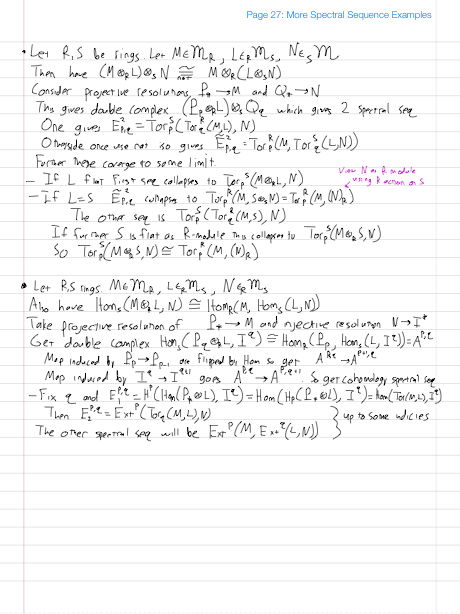 Page 27: More Spectral Sequence Examples
• Let R,S be rings. Let M∈M_R, L∈_R M_S, N∈_S M
Then have (M⊗_R L)⊗_S N ≅_nat M⊗_R(L⊗_S N)
Consider projective resolutions P_*→M and Q_*→N
This gives double complex (P_p⊗_R L)⊗_S Q_q which gives 2 spectral seq
One gives E²_{p,q} = Tor_p^S(Tor_q^R(M,L), N)
Otherside once use nat iso gives Ẽ²_{p,q} = Tor_p^R(M, Tor_q^S(L,N))
Further these converge to same limit.
View N as R-module
using R action on S
– If L flat first seq collapses to Tor_p^S(M⊗_R L, N)
– If L=S Ẽ²_{p,q} collapses to Tor_p^R(M, S⊗_S N) = Tor_p^R(M, (N)_R)
The other seq is Tor_p^S(Tor_q^R(M,S), N)
If further S is flat as R-module this collapses to Tor_p^S(M⊗_R S, N)
So Tor_p^S(M⊗_R S, N) ≅ Tor_p^R(M, (N)_R)
• Let R,S rings. M∈M_R, L∈_R M_S, N∈_R M_S
Also have Hom_S(M⊗_R L, N) ≅ Hom_R(M, Hom_S(L,N))
Take projective resolution of P_*→M and injective resolution N→I^*
Get double complex Hom_S(P_p⊗_R L, I^q) ≅ Hom_R(P_p, Hom_S(L, I^q)) = A^{p,q}
Map induced by P_p→P_{p-1} are flipped by Hom so get A^{p,q}→A^{p+1,q}
Map induced by I^q→I^{q+1} goes A^{p,q}→A^{p,q+1}. So get cohomology spectral seq
– Fix q and E_1^{p,q} = H^p(Hom(P_*⊗L, I^q)) = Hom(H_p(P_*⊗L), I^q) = Hom(Tor(M,L), I^q)
Then E_2^{p,q} = Ext^p(Tor_q(M,L), N)
The other spectral seq will be Ext^p(M, Ext^q(L,N))
} up to some indicies